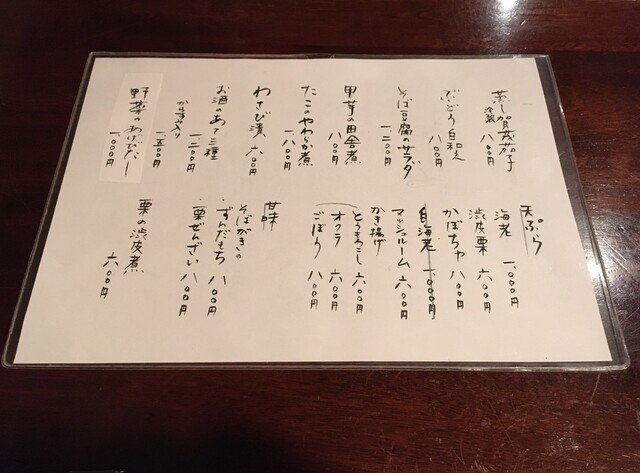 蒸し賀茂茄子
冷製 八〇〇円
ぶどう白和え
八〇〇円
そば豆腐のサラダ
一二〇〇円
里芋の田舎煮
八〇〇円
たこのやわらか煮
一八〇〇円
わさび漬 六〇〇円
お酒のあて三種
一二〇〇円
からすみ入り
一五〇〇円
野菜のあげびたし
一〇〇〇円
天ぷら
海老 一〇〇〇円
渋皮栗 六〇〇円
かぼちゃ 八〇〇円
白海老 一〇〇〇円
マッシュルーム 六〇〇円
かき揚げ
とうもろこし 六〇〇円
オクラ 八〇〇円
ごぼう 八〇〇円
甘味
そばがきの
・ずんだもち 八〇〇円
・栗ぜんざい 八〇〇円
栗の渋皮煮
六〇〇円